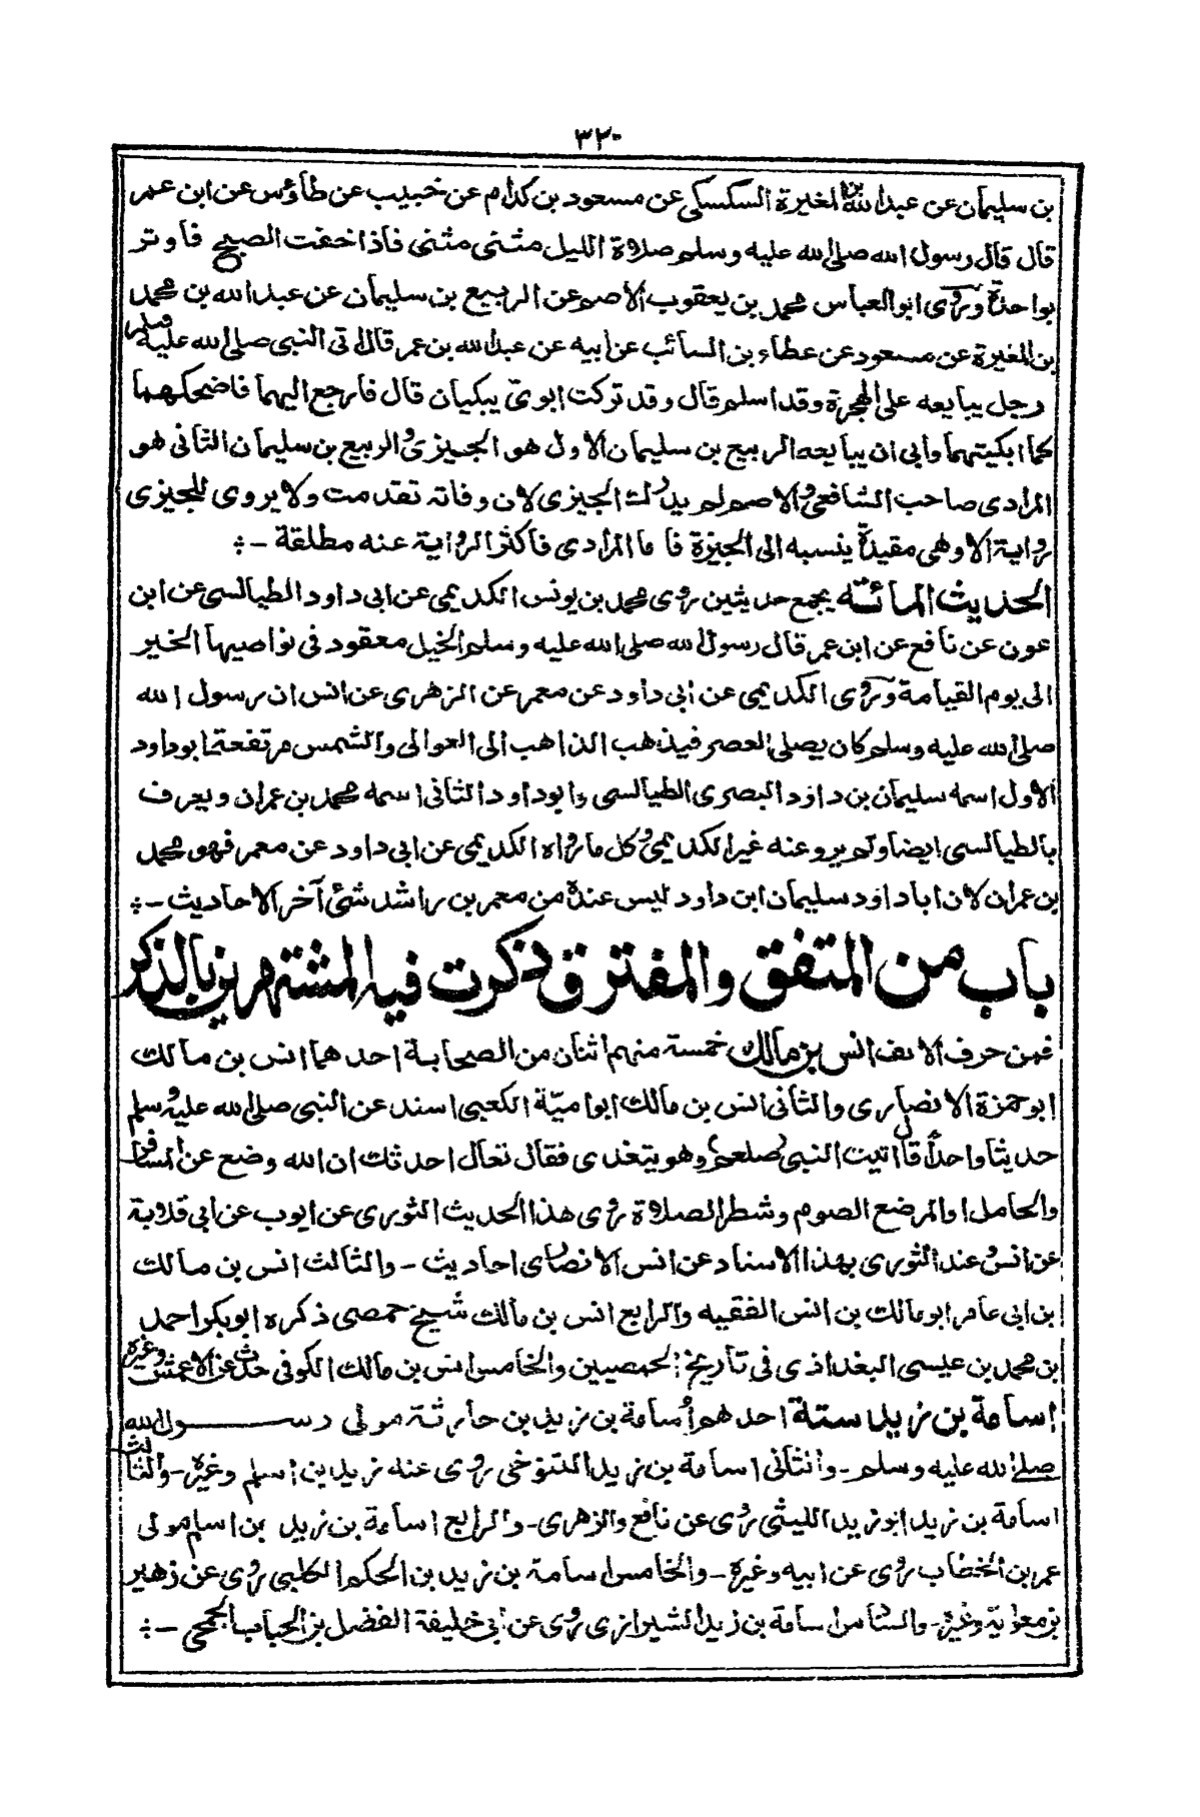 ٣٢٠
بن سليمان عن عبد الله بن المغيرة السكسكى عن مسعود بن كدام عن خبيب عن طاؤس عن ابن عمر
قال قال رسول الله صلى الله عليه وسلم صلاة الليل مثنى مثنى فاذا خفت الصبح فاوتر
بواحدة وروى ابو العباس محمد بن يعقوب الاصم عن الربيع بن سليمان عن عبد الله بن محمد
بن المغيرة عن مسعود عن عطاء بن السائب عن ابيه عن عبد الله بن عمر قال اتى النبى صلى الله عليه وسلم
رجل يبايعه على الهجرة وقد اسلم قال وقد تركت ابوىّ يبكيان قال فارجع اليهما فاضحكهما
كما ابكيتهما وابى ان يبايعه الربيع بن سليمان الاول هو الجيزى والربيع بن سليمان الثانى هو
المرادى صاحب الشافعى والاصم لم يدرك الجيزى لان وفاته تقدمت ولا يروى للجيزى
رواية الا وهى مقيدة ينسبه الى الجيزة فاما المرادى فاكثر الرواية عنه مطلقة -:
الحديث المائة يجمع حديثين روى محمد بن يونس الكديمى عن ابى داود الطيالسى عن ابن
عون عن نافع عن ابن عمر قال رسول الله صلى الله عليه وسلم الخيل معقود فى نواصيها الخير
الى يوم القيامة وروى الكديمى عن ابى داود عن معمر عن الزهرى عن انس ان رسول الله
صلى الله عليه وسلم كان يصلى العصر فيذهب الذاهب الى العوالى والشمس مرتفعة ابوداود
الاول اسمه سليمان بن داود البصرى الطيالسى وابوداود الثانى اسمه محمد بن عمران ويعرف
بالطيالسى ايضا ولم يرو عنه غير الكديمى وكل ما رواه الكديمى عن ابى داود عن معمر فهو محمد
بن عمران لان اباداود سليمان ابن داود ليس عنده من معمر بن راشد شئ آخر الاحاديث -:
باب من المتفق والمفترق ذكرت فيه المشتهرين بالذكر
فمن حرف الالف انس بن مالك خمسة منهم اثنان من الصحابة احدهما انس بن مالك
ابو حمزة الانصارى والثانى انس بن مالك ابو اميّة الكعبى اسند عن النبى صلى الله عليه وسلم
حديثا واحداً قال اتيت النبى صلعم وهو يتغدى فقال تعال احدثك ان الله وضع عن المسافر
والحامل او المرضع الصوم وشطر الصلاة روى هذا الحديث الثورى عن ايوب عن ابى قلابة
عن انس وعند الثورى بهذا الاسناد عن انس الانصارى احاديث - والثالث انس بن مالك
بن ابى عامر ابو مالك بن انس الفقيه والرابع انس بن مالك شيخ حمصى ذكره ابوبكر احمد
بن محمد بن عيسى البغداذى فى تاريخ الحمصيين والخامس انس بن مالك الكوفى حدث عن الاعمش وغيره
اسامة بن زيد ستة احدهم اُسامة بن زيد بن حارثة مولى رسول الله
صلى الله عليه وسلم - والثانى اسامة بن زيد التنوخى روى عنه زيد بن اسلم وغيره - والثالث
اسامة بن زيد ابو زيد الليثى روى عن نافع والزهرى - والرابع اسامة بن زيد بن اسلم مولى
عمر بن الخطاب روى عن ابيه وغيره - والخامس اسامة بن زيد بن الحكم الكلبى روى عن زهير
بن معاوية وغيره - والسادس اسامة بن زيد الشيرازى روى عن ابى خليفة الفضل بن الحباب الجمحى -: